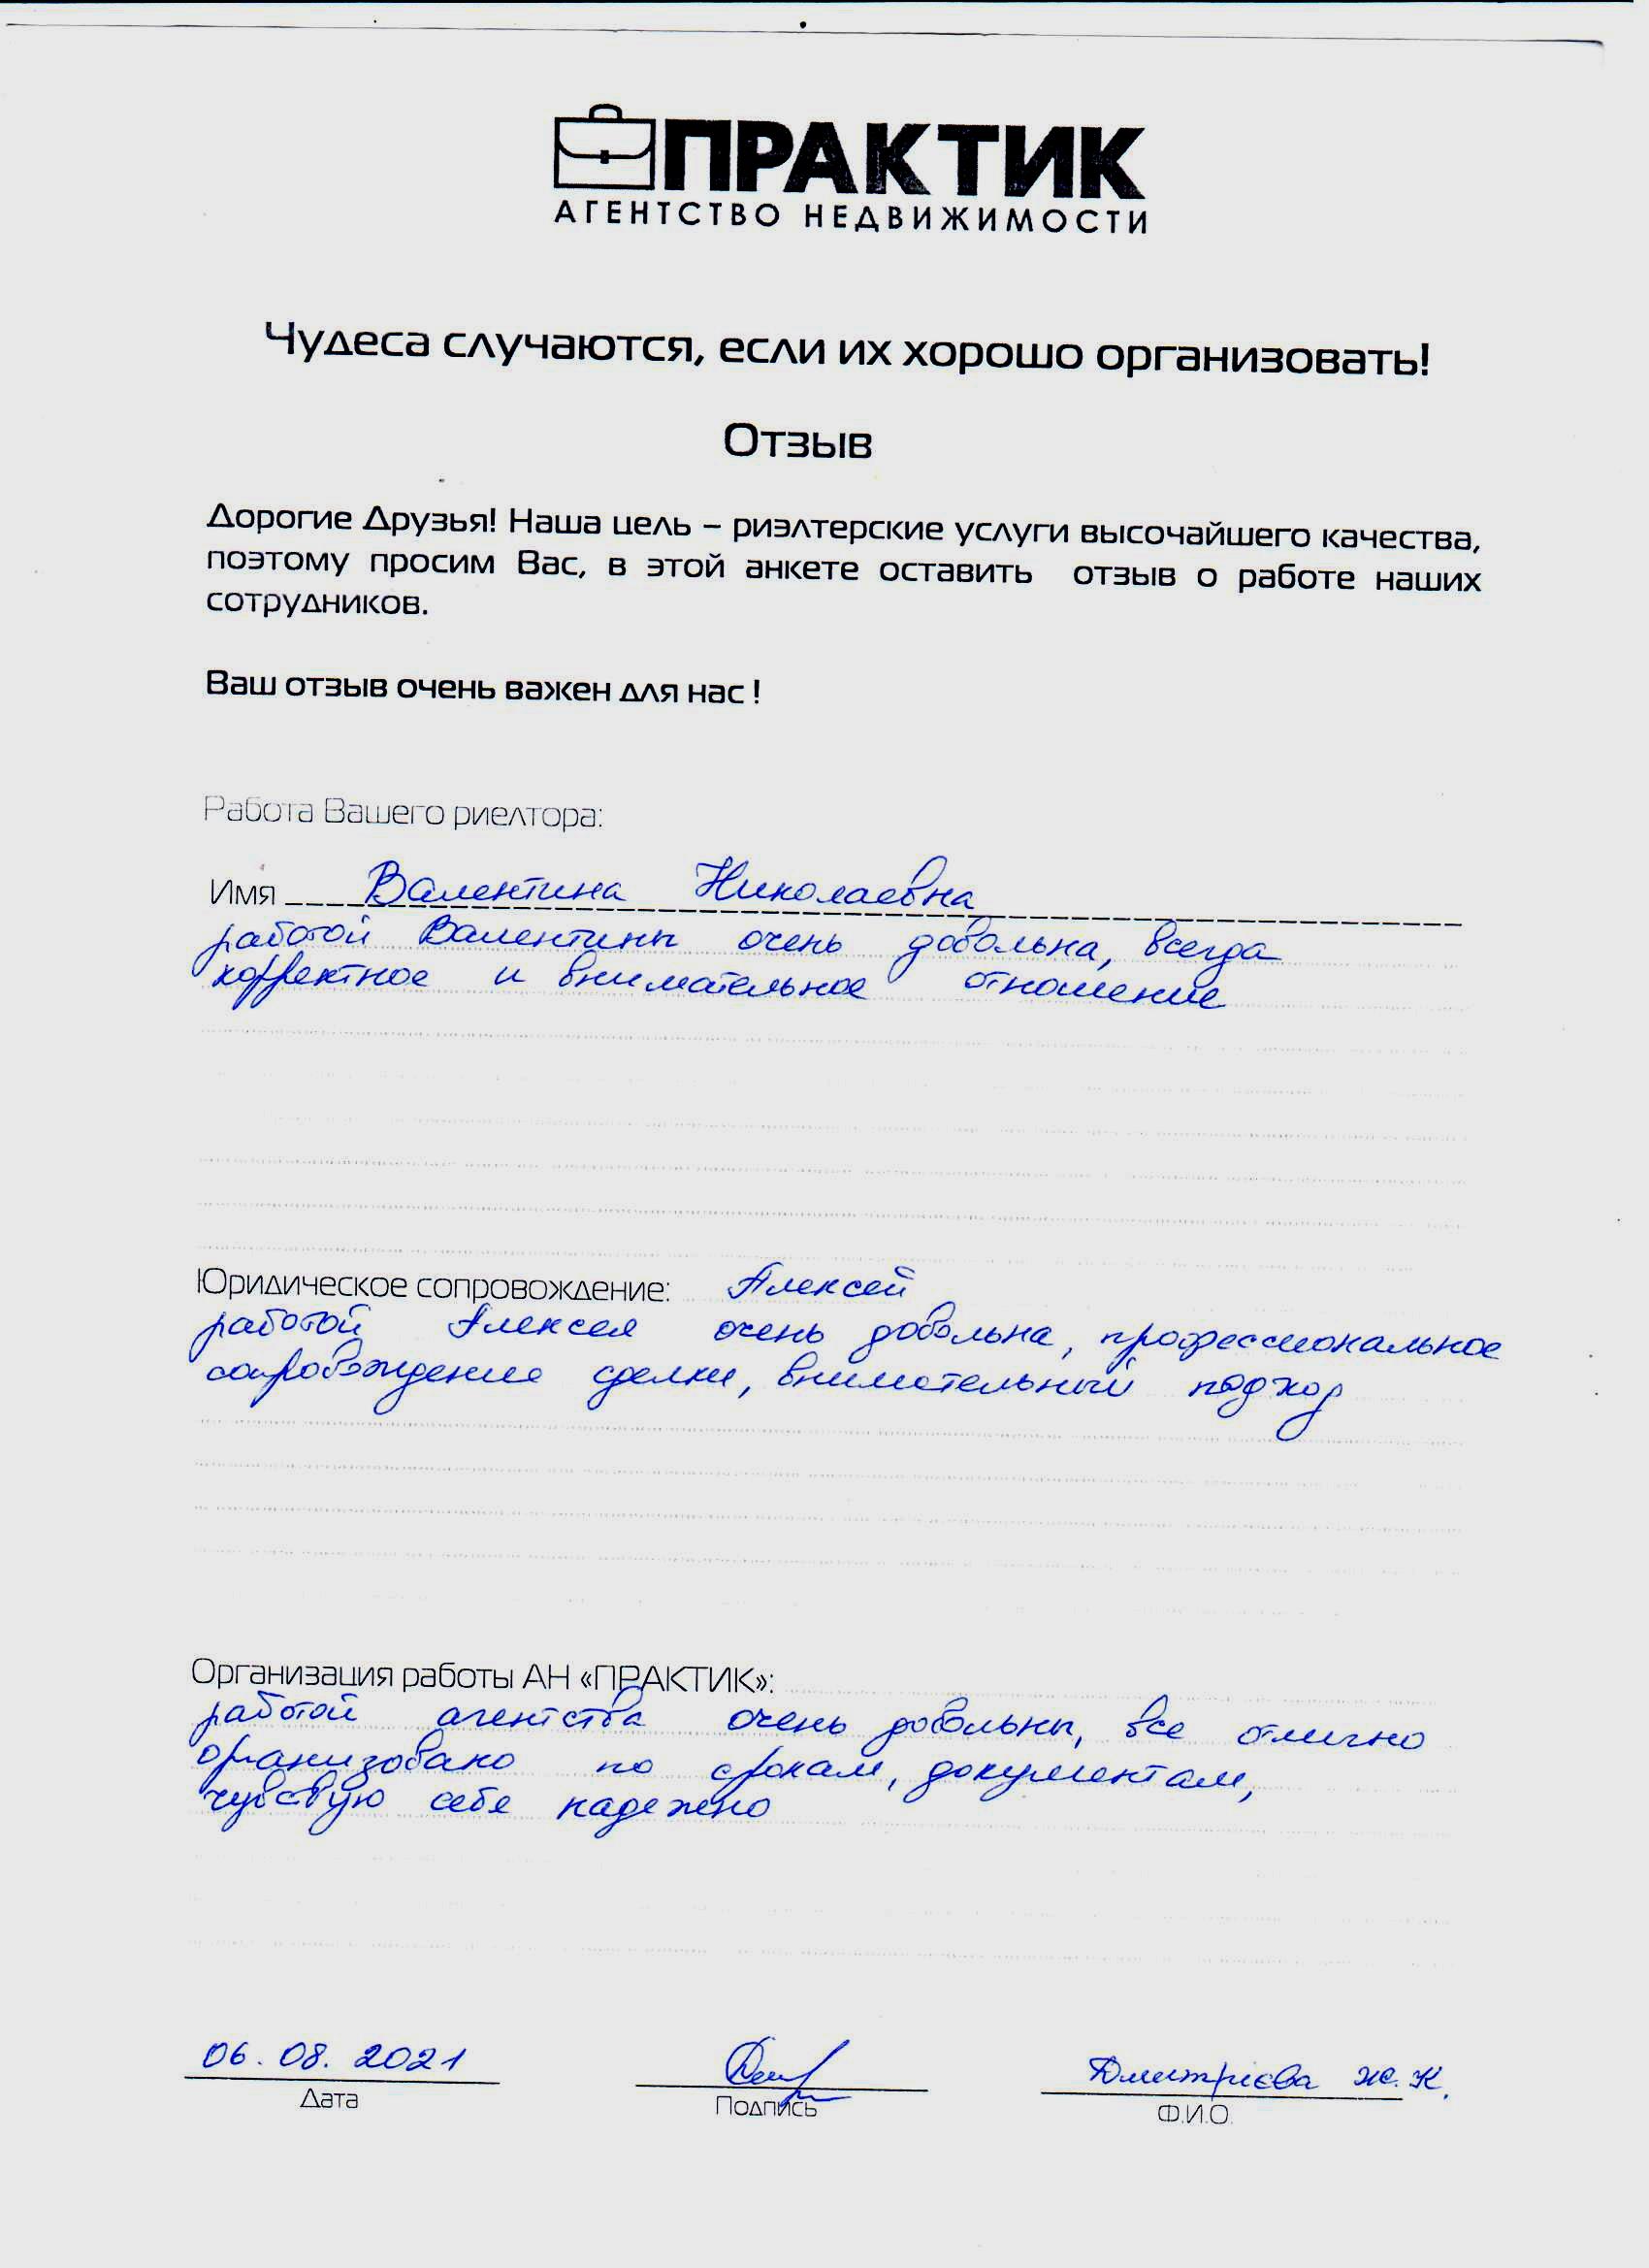 ПРАКТИК
АГЕНТСТВО НЕДВИЖИМОСТИ
Чудеса случаются, если их хорошо организовать!
Отзыв
Дорогие Друзья! Наша цель – риэлтерские услуги высочайшего качества,
поэтому просим Вас, в этой анкете оставить отзыв о работе наших
сотрудников.
Ваш отзыв очень важен для нас !
Работа Вашего риелтора:
Имя Валентина Николаевна
работой Валентины очень довольна, всегда
корректное и внимательное отношение
Юридическое сопровождение: Алексей
работой Алексея очень довольна, профессиональное
сопровождение сделки, внимательный подход
Организация работы АН «ПРАКТИК»:
работой агентства очень довольны, все отлично
организовано по срокам, документам,
чувствую себя надежно
06.08.2021 Дмитриева Ж.К.
Дата Подпись Ф.И.О.